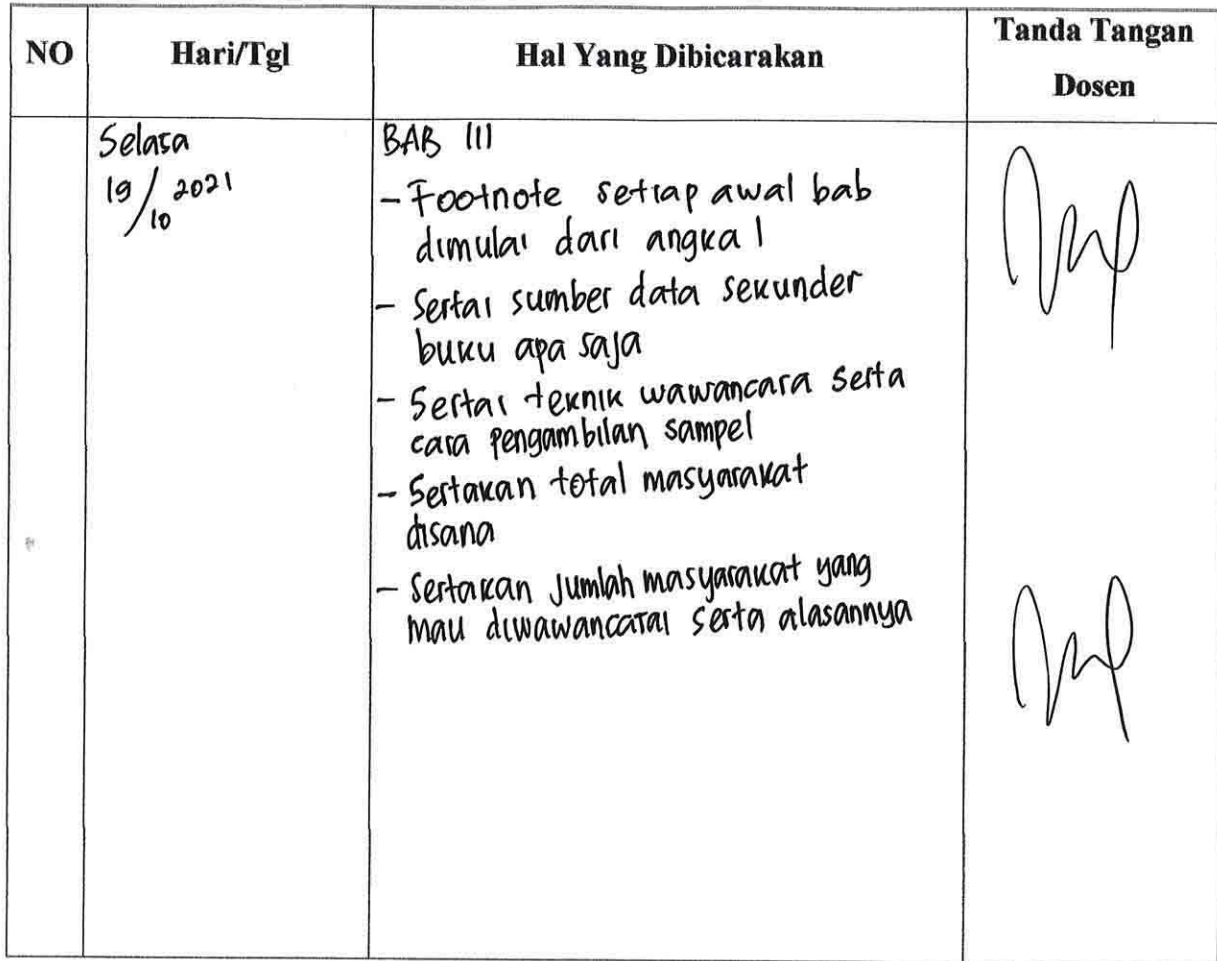 NO
Hari/Tgl
Hal Yang Dibicarakan
Tanda Tangan
Dosen
Selasa
19/10 2021
BAB III
- Footnote setiap awal bab
dimulai dari angka 1
- Sertai sumber data sekunder
buku apa saja
- Sertai teknik wawancara serta
cara pengambilan sampel
- Sertakan total masyarakat
disana
- Sertakan Jumlah masyarakat yang
mau diwawancarai serta alasannya